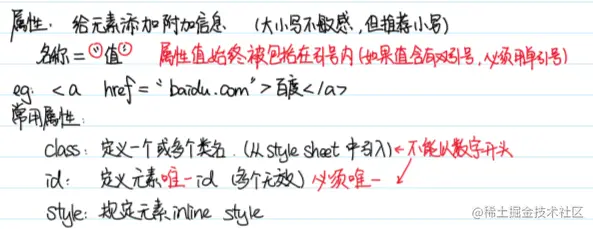 属性：给元素添加附加信息 （大小写不敏感，但推荐小写）
名称＝"值" 属性值始终被包括在引号内（如果值含有双引号，必须用单引号）
eg: <a href="baidu.com">百度</a>
常用属性：
class：定义一个或多个类名.（从style sheet中引入）←不能以数字开头
id： 定义元素唯一id （多个无效） 必须唯一
style：规定元素inline style
@稀土掘金技术社区